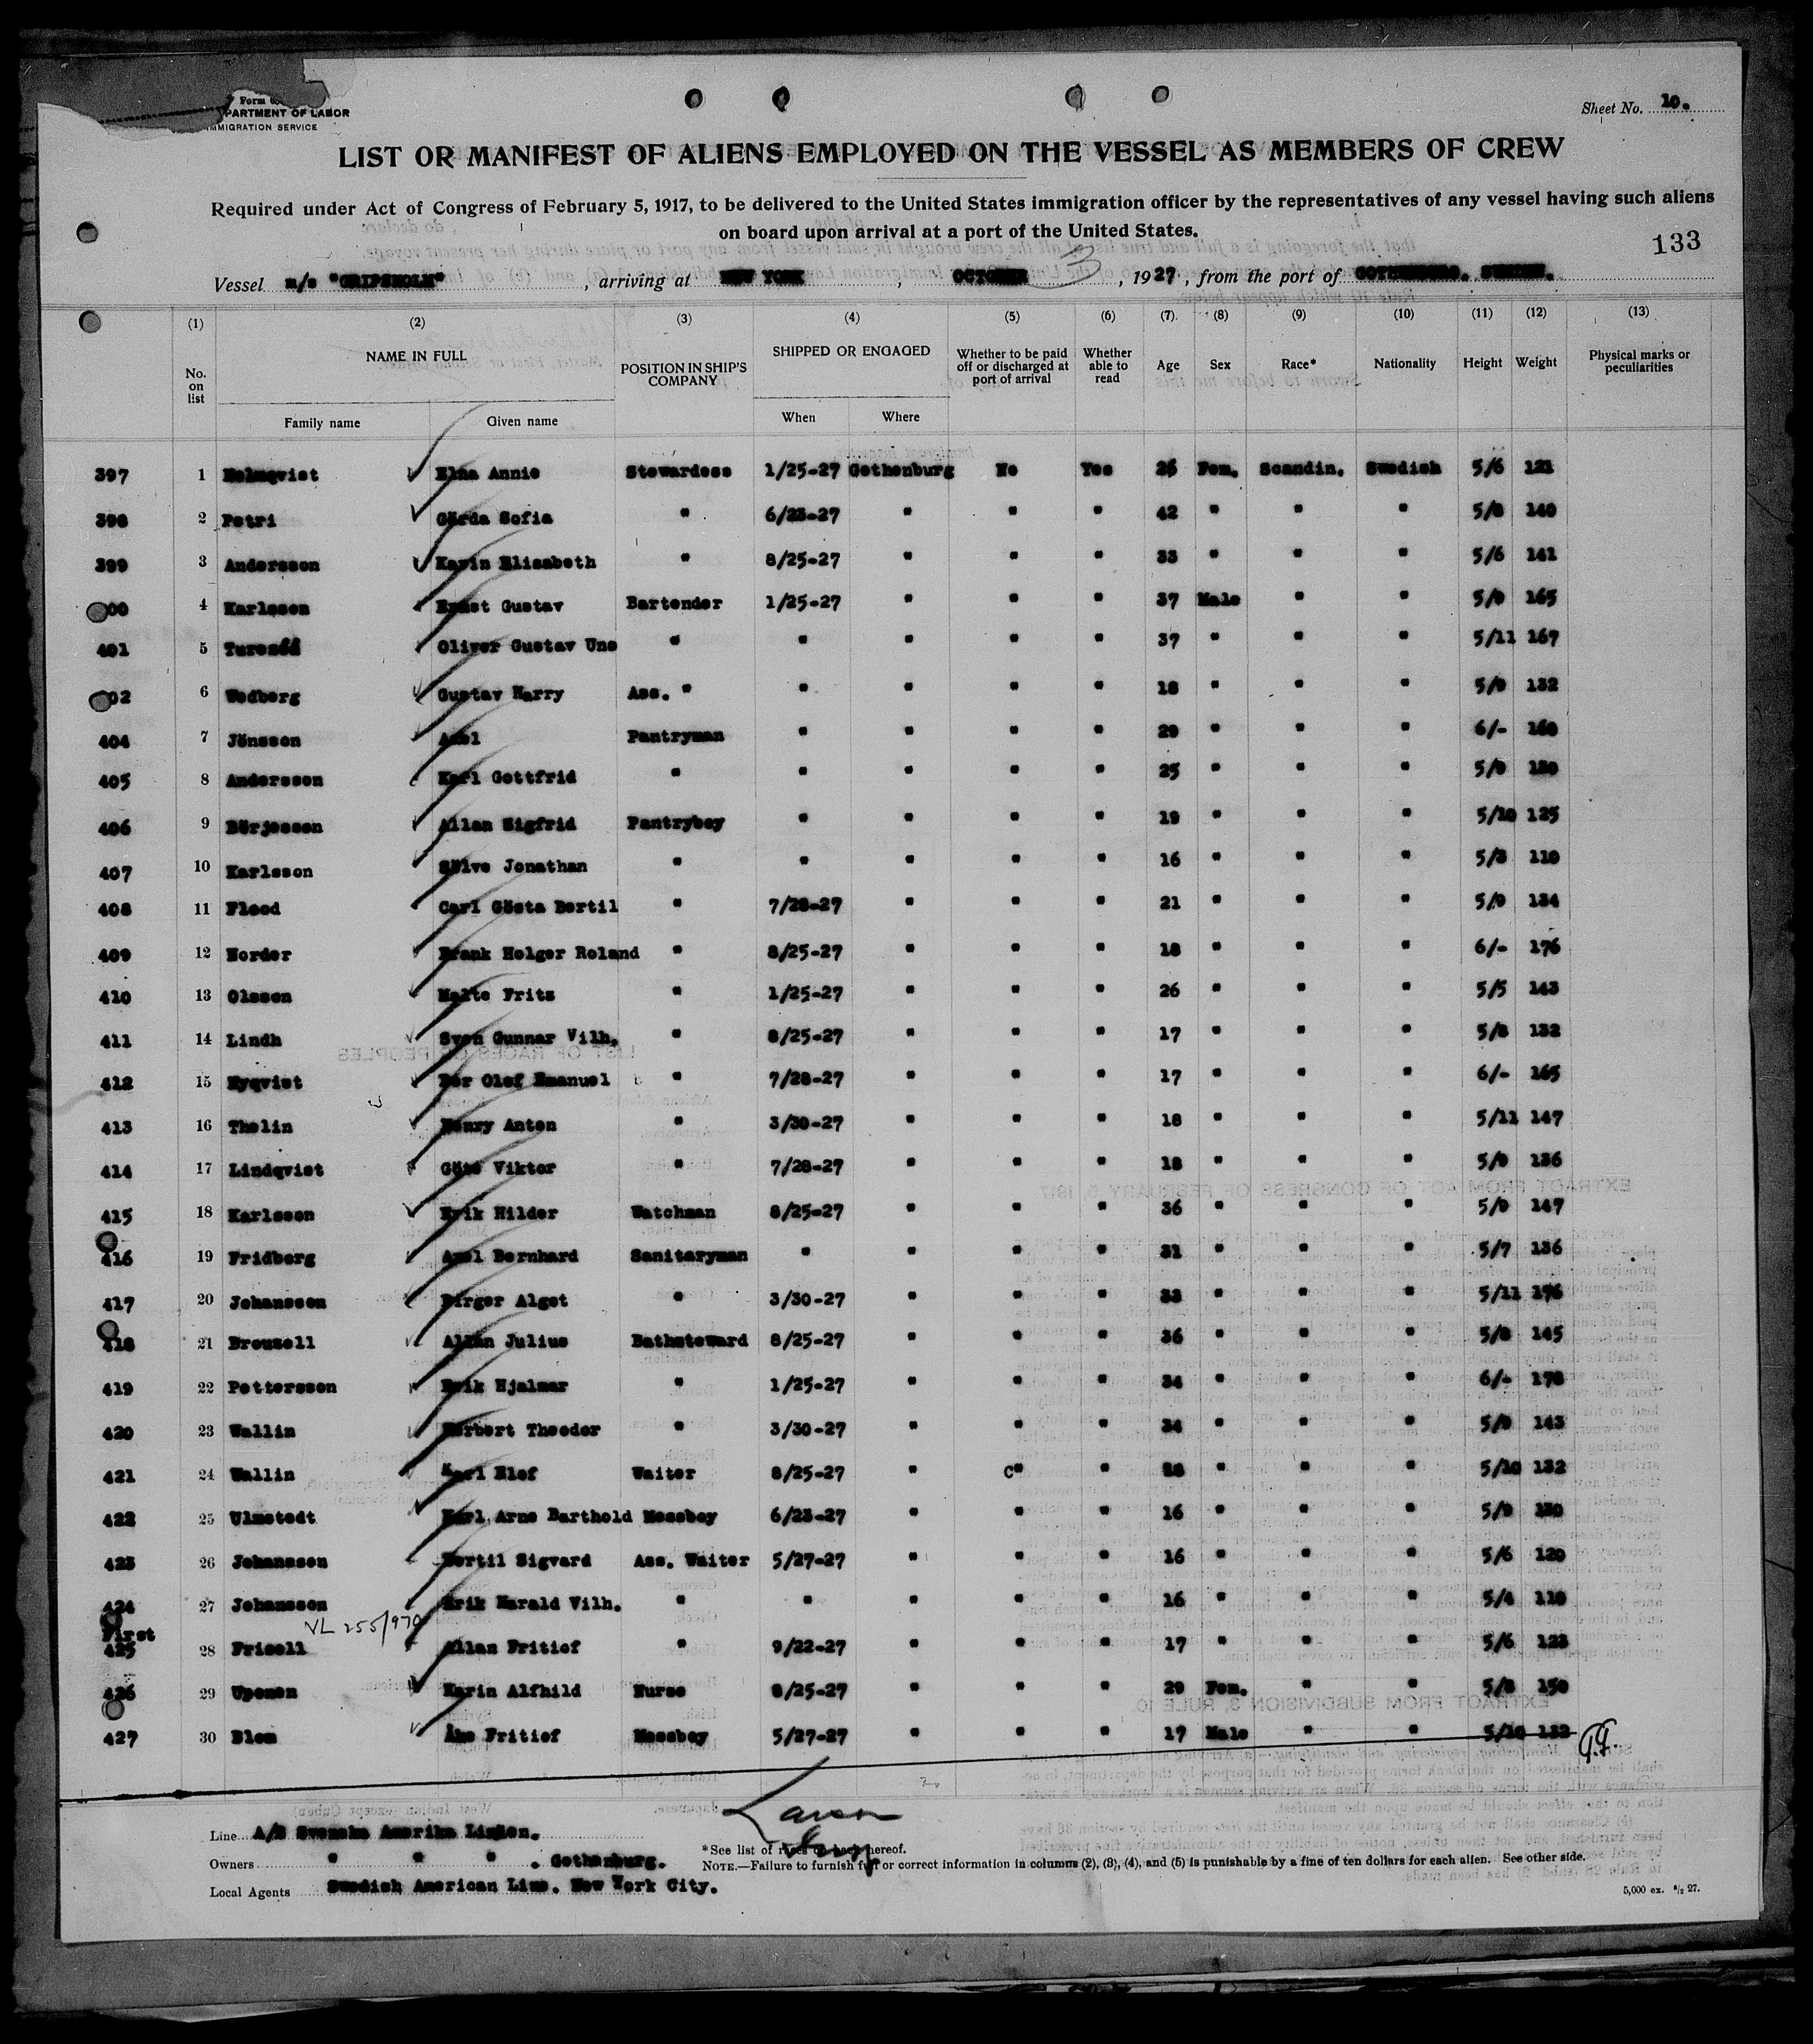 Form 6
PARTMENT OF LABOR
MMIGRATION SERVICE
Sheet No. 10.
LIST OR MANIFEST OF ALIENS EMPLOYED ON THE VESSEL AS MEMBERS OF CREW
Required under Act of Congress of February 5, 1917, to be delivered to the United States immigration officer by the representatives of any vessel having such aliens
on board upon arrival at a port of the United States.
133
Vessel m/s "GRIPSHOLM", arriving at NEW YORK, OCTOBER 3, 1927, from the port of GOTHENBURG. SWEDEN.
(1) (2) (3) (4) (5) (6) (7) (8) (9) (10) (11) (12) (13)
No. on list NAME IN FULL POSITION IN SHIP'S COMPANY SHIPPED OR ENGAGED Whether to be paid off or discharged at port of arrival Whether able to read Age Sex Race* Nationality Height Weight Physical marks or peculiarities
Family name Given name When Where
397 1 Holmqvist Elna Annie Stewardess 1/25-27 Gothenburg No Yes 26 Fem. Scandin. Swedish 5/6 121
398 2 Petri Gärda Sofia " 6/23-27 " " " 42 " " " 5/8 140
399 3 Andersson Karin Elisabeth " 8/25-27 " " " 33 " " " 5/6 141
00 4 Karlsson Ernst Gustav Bartender 1/25-27 " " " 37 Male " " 5/9 165
401 5 Oliver Gustav Uno " " " " " 37 " " " 5/11 167
02 6 Wedberg Gustav Harry Ass. " " " " " 18 " " " 5/9 132
404 7 Jönsson Axel Pantryman " " " " 29 " " " 6/- 160
405 8 Andersson Karl Gottfrid " " " " " 25 " " " 5/9
406 9 Börjesson Allan Sigfrid Pantryboy " " " " 19 " " " 5/10 125
407 10 Karlsson Sölve Jonathan " " " " " 16 " " " 5/3 110
408 11 Flood Carl Gösta Bertil " 7/28-27 " " " 21 " " " 5/9 134
409 12 Norder Frank Holger Roland " 8/25-27 " " " 18 " " " 6/- 176
410 13 Olsson Malte Fritz " 1/25-27 " " " 26 " " " 5/5 143
411 14 Lindh Sven Gunnar Vilh. " 8/25-27 " " " 17 " " " 5/8 132
412 15 Nyqvist Per Olof Emanuel " 7/28-27 " " " 17 " " " 6/- 165
413 16 Thelin Henry Anton " 3/30-27 " " " 18 " " " 5/11 147
414 17 Lindqvist Göte Viktor " 7/28-27 " " " 18 " " " 5/9 136
415 18 Karlsson Erik Hilder Watchman 8/25-27 " " " 36 " " " 5/9 147
416 19 Fridberg Axel Bernhard Sanitaryman " " " " 31 " " " 5/7 136
417 20 Johansson Birger Algot " 3/30-27 " " " 33 " " " 5/11 176
418 21 Brouzell Allan Julius Bathsteward 8/25-27 " " " 36 " " " 5/8 145
419 22 Pettersson Erik Hjalmar " 1/25-27 " " " 34 " " " 6/- 178
420 23 Wallin Herbert Theodor " 3/30-27 " " " 34 " " " 5/9 143
421 24 Wallin Karl Elof Waiter 8/25-27 " " " " " " 5/10 132
422 25 Ulmstedt Karl Arne Barthold Messboy 6/23-27 " " " 16 " " " 5/9 130
423 26 Johansson Bertil Sigvard Ass. Waiter 5/27-27 " " " 16 " " " 5/6 120
424 27 Johansson Erik Harald Vilh. " " " " " 16 " " " 5/4 110
First VL 255/970
425 28 Frisell Allan Fritiof " 9/22-27 " " " 17 " " " 5/6 123
426 29 Uponen Karin Alfhild Nurse 8/25-27 " " " 29 Fem. " " 5/8 150
427 30 Blom Åke Fritiof Messboy 5/27-27 " " " 17 Male " " 5/10 132 G.G.
Larson
Line A/B Svenska Amerika Linien.
*See list of races on back hereof.
Owners " " " . Gothenburg.
NOTE.—Failure to furnish full or correct information in columns (2), (3), (4), and (5) is punishable by a fine of ten dollars for each alien. See other side.
Local Agents Swedish American Line. New York City.
5,000 ex. 8/2 27.